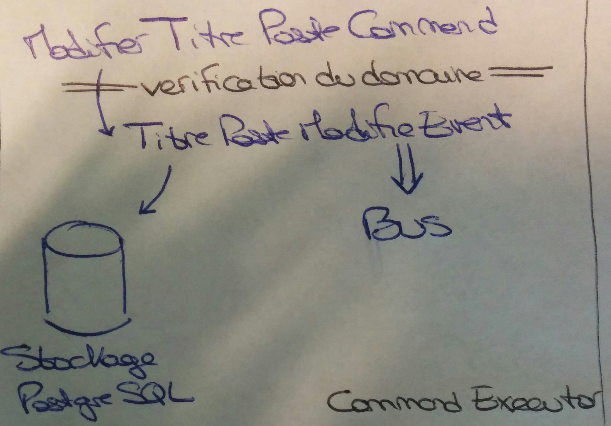 Modifier Titre Poste Command
verification du domaine
Titre Poste Modifie Event
Bus
Stockage
Postgre SQL
Command Executor